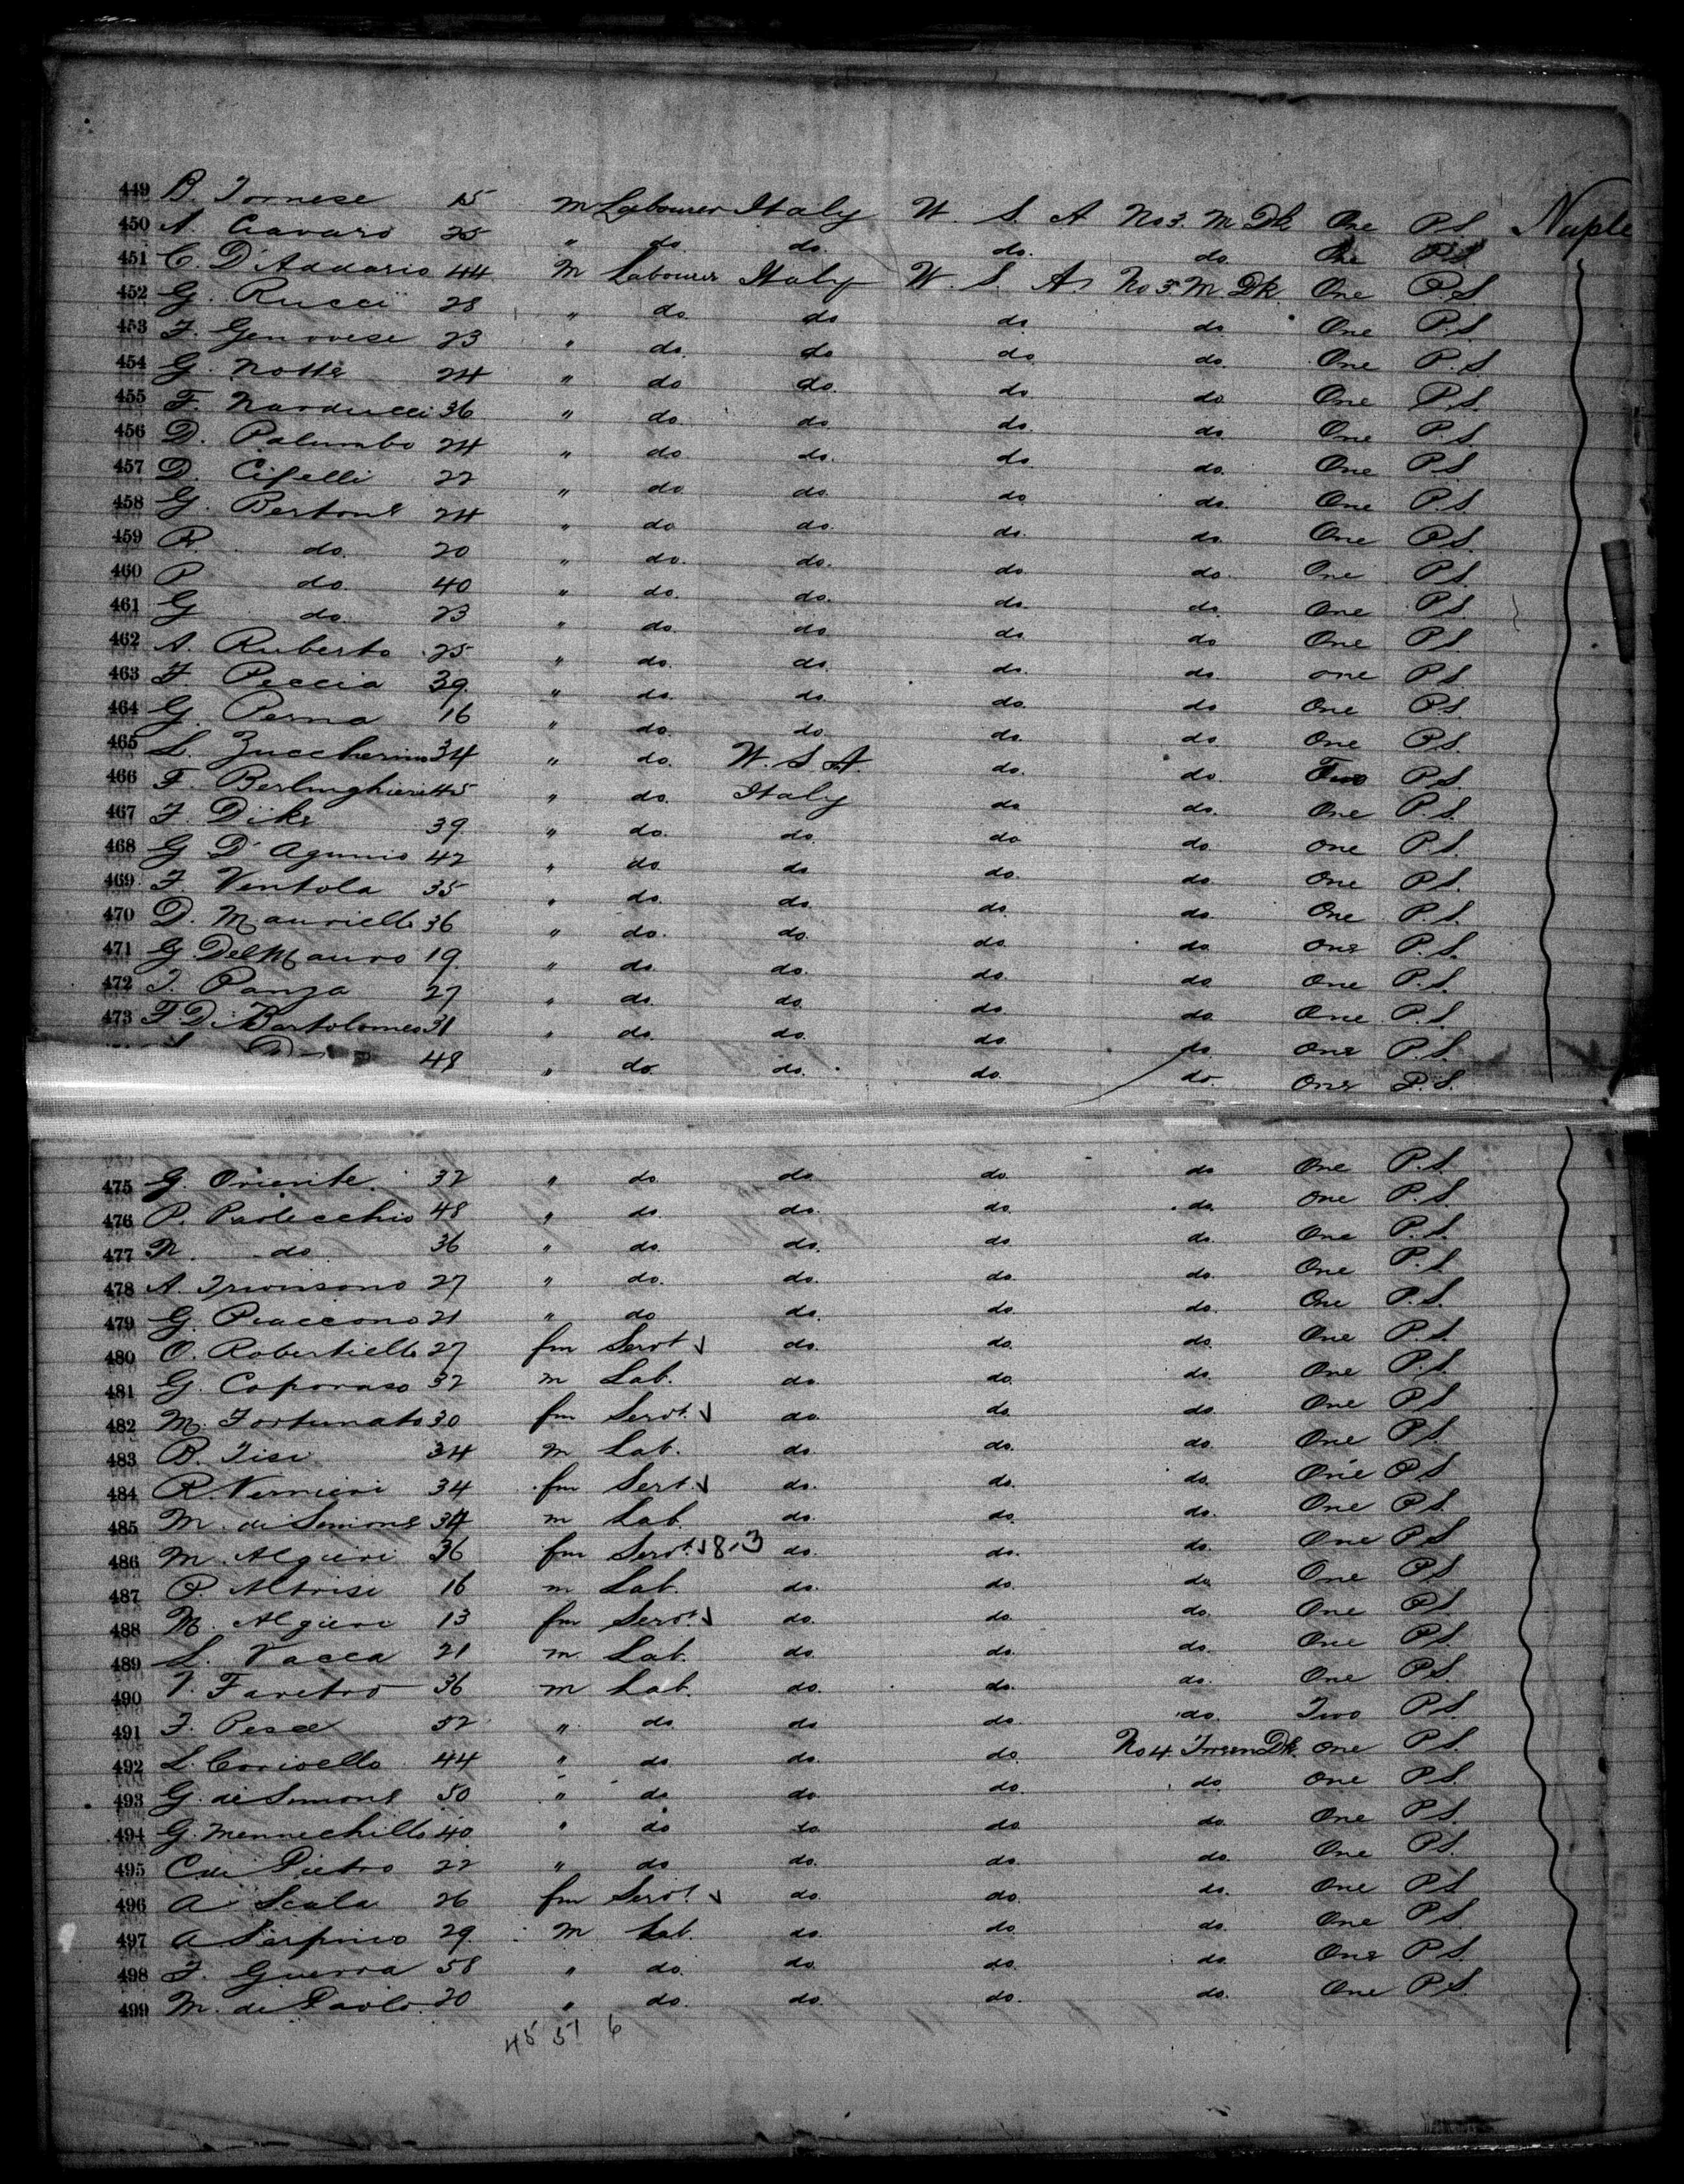 449 B. Tornese 15 m Labourer Italy U. S. A No 3. M. Dk One P.S Naple
450 A. Cavaro 25 " do do. do. do. One P.S
451 C. D'Addario 44 m Labourer Italy U. S. A. No 3. M. Dk. One P.S
452 G. Rucci 28 " do. do do do. One P.S.
453 F. Genovese 23 " do. do do do. One P.S.
454 G. Notte 24 " do do. do do One P.S.
455 F. Narducci 36 " do. do. do. do. One P.S.
456 D. Palumbo 24 " do. do. do do. One P.S
457 D. Cifelli 22 " do do. do do. One P.S
458 G. Bertone 24 " do do. do. do. One P.S.
459 R. do. 20 " do. do. do do. One P.S.
460 P do. 40 " do. do. do. do. One P.S
461 G do. 23 " do. do. do do One P.S
462 A. Ruberto 25 " do. do. do. do. one P.S
463 F. Peccia 39. " do. do. do. do One P.S.
464 G. Perna 16 " do. do. do. do. One P.S.
465 L. Zuccherino 34 " do. U.S.A. do. do. Two P.S.
466 F. Berlinghieri 45 " do. Italy do do. One P.S.
467 F. Dike 39. " do. do. do do. one P.S.
468 G D'Agunno 42 " do. do do. do. One P.S.
469 F. Ventola 35 " do. do. do. do. One P.S.
470 D. Mauriello 36 " do. do. do. do one P.S.
471 G. DelMauro 19. " do. do. do. do. One P.S.
472 F. Panza 27 " do. do. do. do. One P.S.
473 F Di Bartolomeo 31 " do. do. do. do. one P.S.
48 " do. do. do. do. One P.S.
475 G. Oriente. 32 " do do. do. do One P.S.
476 P. Paolecchio 48 " do. do. do. do. one P.S.
477 N. do. 36 " do. do. do do. One P.S.
478 A. Trivisono 27 " do. do. do. do. One P.S.
479 G. Piaccono 21 " do do. do do. One P.S.
480 O. Robertiello 27 fm Servt do. do. do. One P.S.
481 G. Caporaso 32 m Lab. do. do. do. One P.S.
482 M. Fortunato 30 fm Servt. do. do. do. One P.S
483 B. Tisi 34 m Lab. do. do. do. One P.S
484 R. Vernieri 34 fm Sert. do. do. do. One P.S
485 M. de Simone 34 m Lab. do. do. do. One P.S.
486 M. Algieri 36 fm Servt. 8.3 do. do. do. One P.S
487 P. Altrisi 16 m Lab. do. do. do One P.S
488 M. Algieri 13 fm Servt. do. do. do. One P.S.
489 L. Vacca 21 m Lab. do. do. do. One P.S.
490 V. Faretro 36 m Lab. do. do. do. One P.S.
491 F. Pesce 52 " do. do do. do. Two P.S.
492 L. Corivello 44 " do do. do. No 4. Tween Dk. one P.S.
493 G. de Simone 50 " do do do. do one P.S.
494 G. Mennechillo 40 " do to do do. One P.S.
495 C. de Pietro 22 " do do. do. do. One P.S.
496 A Scala 26 fm Servt. do. do. do. One P.S
497 A. Serpico 29. m Lab. do. do. do. One P.S
498 F. Guerra 58 " do. do. do. do. One P.S
499 M. di Paolo 20 " do. do. do. do. One P.S.
45 51 6